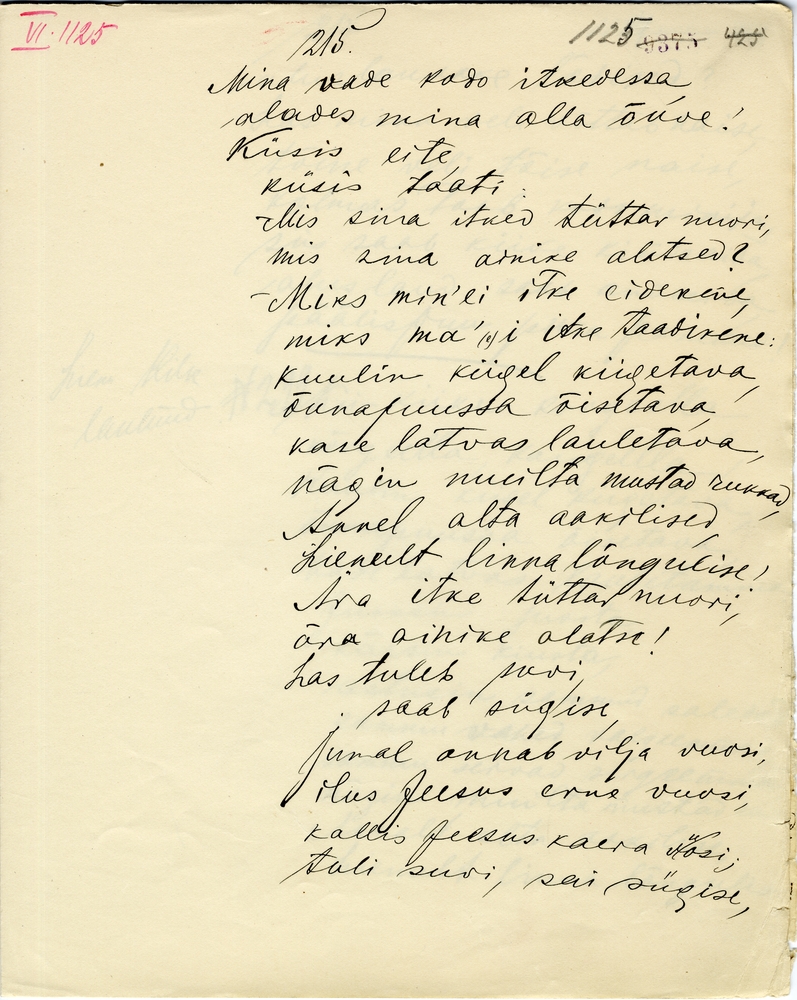 VI. 1125
1125 9375 425
215.
Mina vade kodo itkedessa,
alades mina alla õuve!
Küsis eite,
küsis taati:
Mis sina itked tüttar nuori,
mis sina ainike alatsed?
- Miks min' ei itke eidekene,
miks ma' (e)i itke taadikene:
kuulin kiigel kiigetava,
õunapuussa õisetava,
kase latvas lauletava,
nägin muilta mustad rukkad,
Annel alta aakilised,
Lienult linnalõngulise!
Ära itke tüttar nuori,
ära ainike alatse!
Las tuleb suvi,
saab sügise,
Jumal annab vilja vuosi,
ilus Jeesus erne vuosi,
kallis Jeesus kaera
tuli suvi, sai sügise,